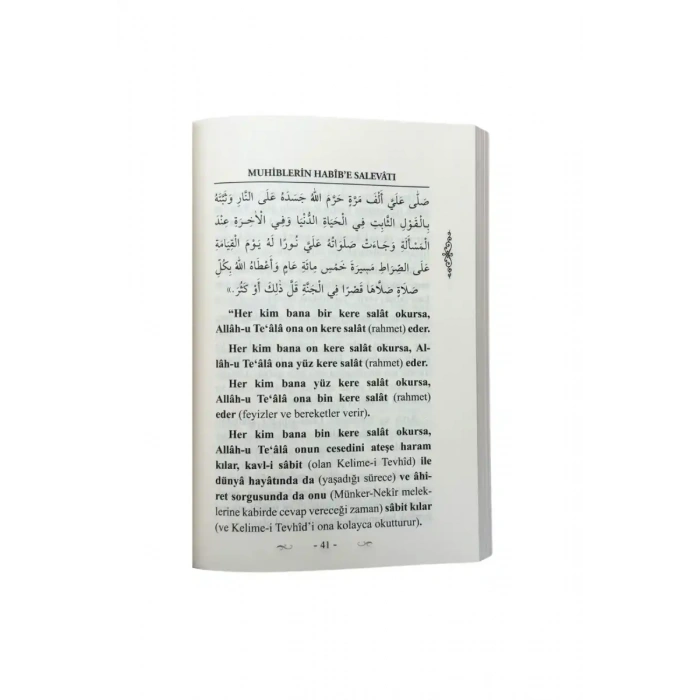 MUHİBLERİN HABÎB'E SALEVÂTI
صَلَّى عَلَيَّ أَلْفَ مَرَّةٍ حَرَّمَ اللّٰهُ جَسَدَهُ عَلَى النَّارِ وَثَبَّتَهُ
بِالْقَوْلِ الثَّابِتِ فِي الْحَيَاةِ الدُّنْيَا وَفِي الْاٰخِرَةِ عِنْدَ
الْمَسْأَلَةِ وَجَاءَتْ صَلَوَاتُهُ عَلَيَّ نُورًا لَهُ يَوْمَ الْقِيَامَةِ
عَلَى الصِّرَاطِ مَسِيرَةَ خَمْسِ مِائَةِ عَامٍ وَأَعْطَاهُ اللّٰهُ بِكُلِّ
صَلَاةٍ صَلَّاهَا قَصْرًا فِي الْجَنَّةِ قَلَّ ذٰلِكَ أَوْ كَثُرَ.»
“Her kim bana bir kere salât okursa,
Allâh-u Te‘âlâ ona on kere salât (rahmet) eder.
Her kim bana on kere salât okursa, Al-
lâh-u Te‘âlâ ona yüz kere salât (rahmet) eder.
Her kim bana yüz kere salât okursa,
Allâh-u Te‘âlâ ona bin kere salât (rahmet)
eder (feyizler ve bereketler verir).
Her kim bana bin kere salât okursa,
Allâh-u Te‘âlâ onun cesedini ateşe haram
kılar, kavl-i sâbit (olan Kelime-i Tevhîd) ile
dünyâ hayâtında da (yaşadığı sürece) ve âhi-
ret sorgusunda da onu (Münker-Nekîr melek-
lerine kabirde cevap vereceği zaman) sâbit kılar
(ve Kelime-i Tevhîd’i ona kolayca okutturur).
- 41 -